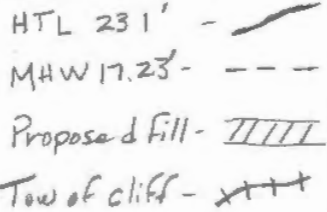 HTL 23 1' -
MHW 17.23' -
Proposed fill -
Tow of cliff -